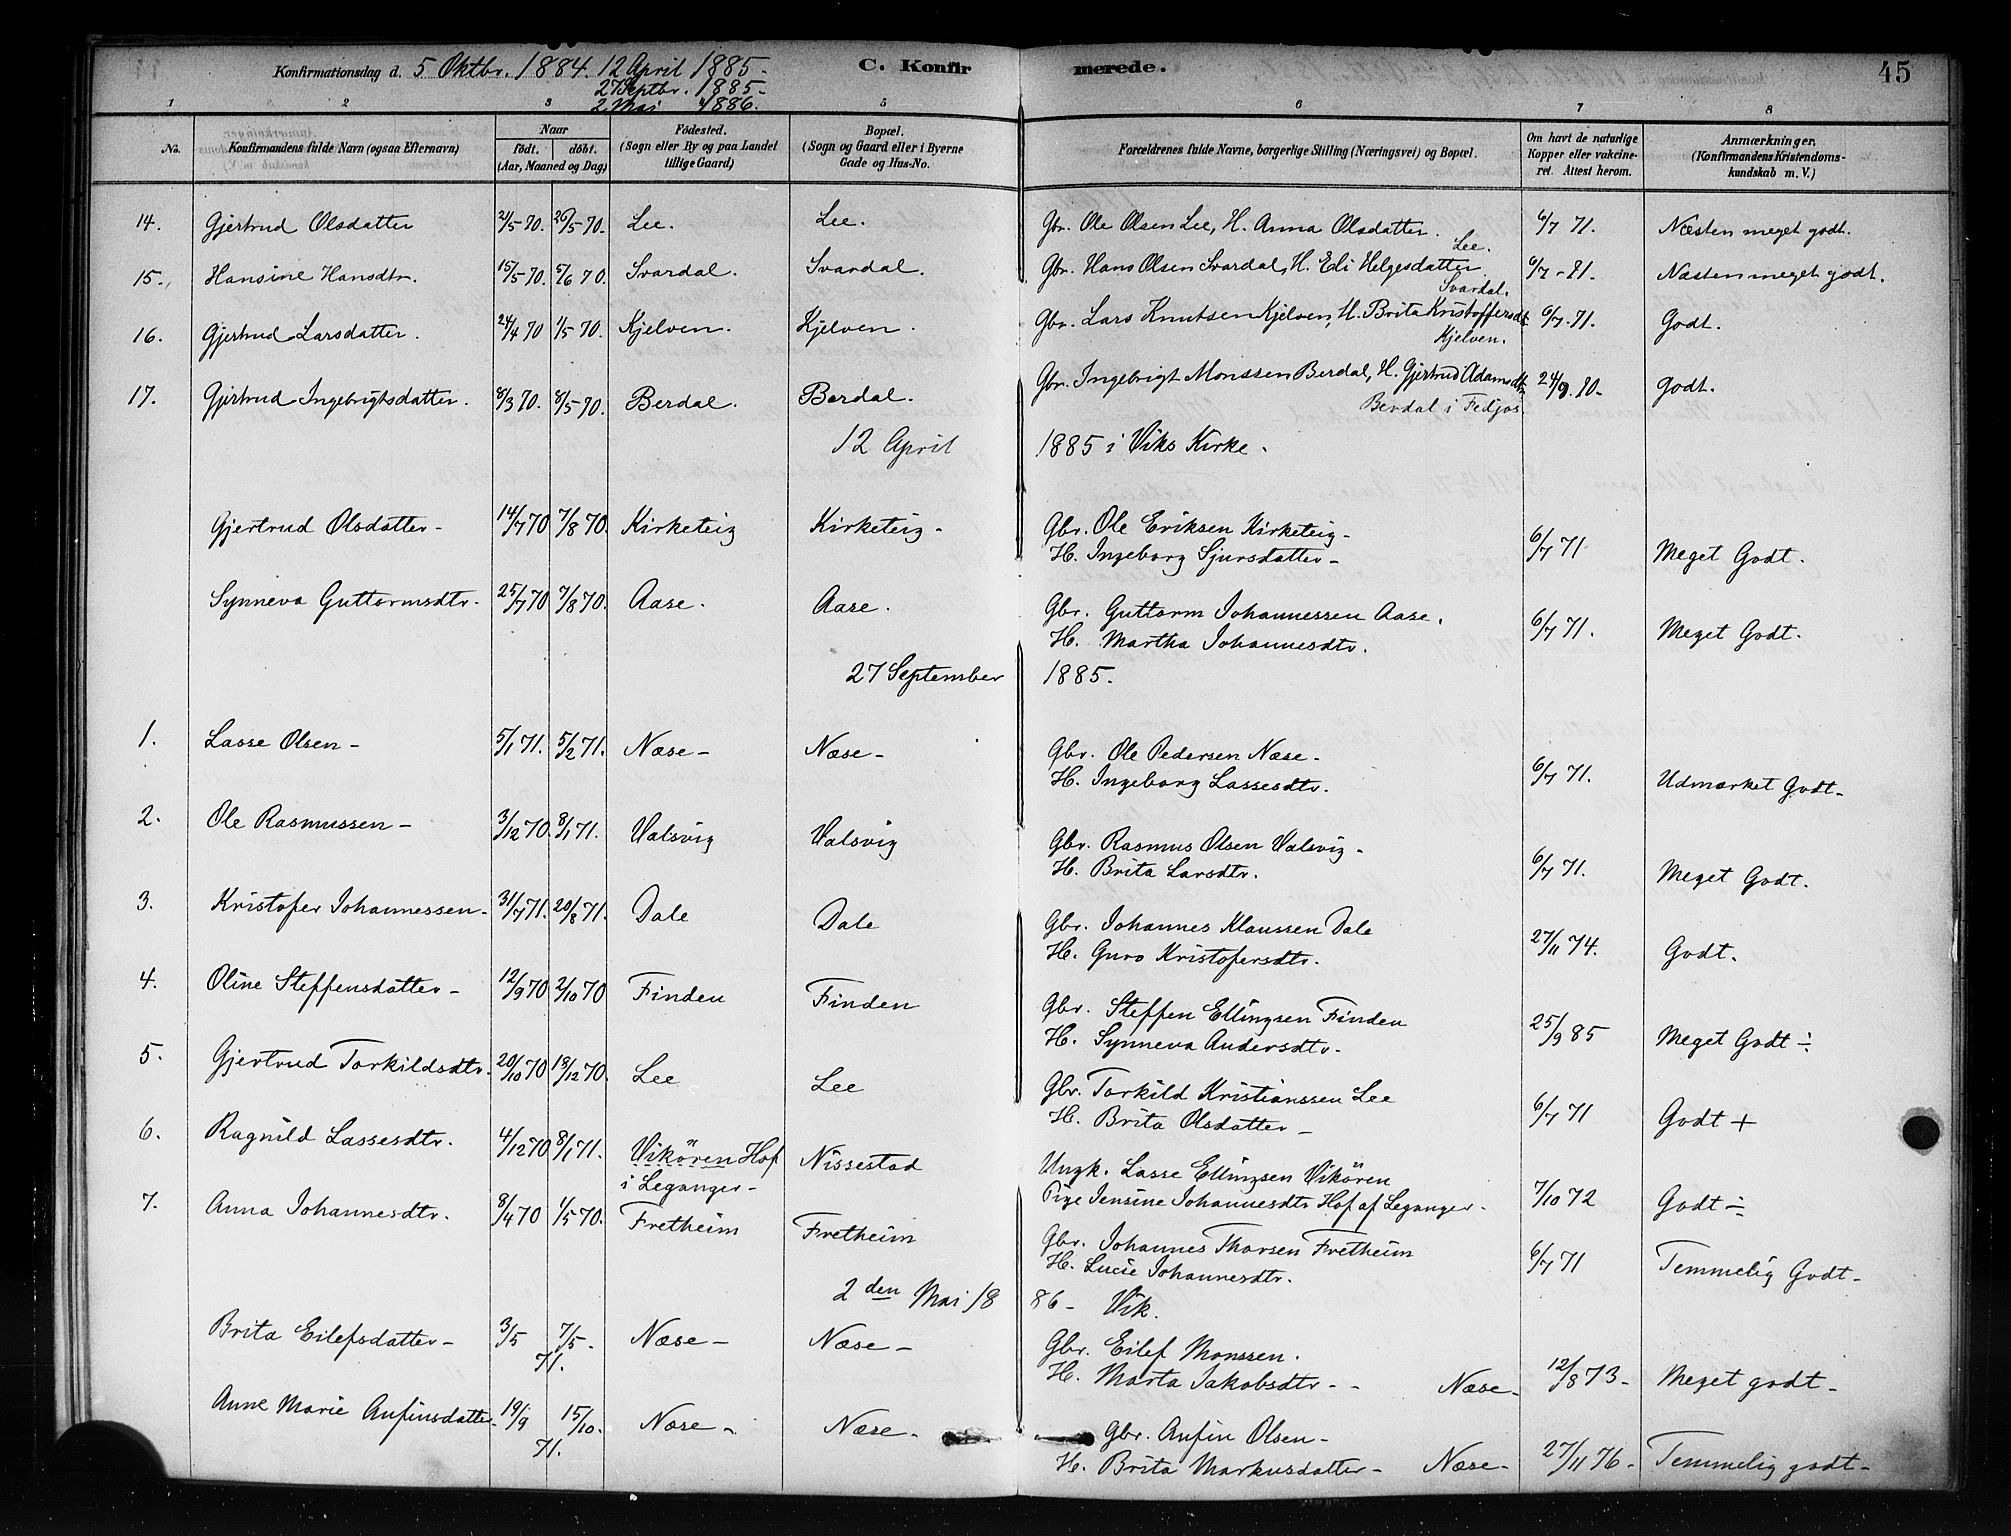 Konfirmationsdag d. 5 Oktbr. 1884. 12 April 1885.
27 Septbr. 1885-
2 Mai 1886.
C. Konfirmerede. 45
1 2 3 5 6 7 8
No. Konfirmandens fulde Navn (ogsaa Efternavn) Naar født. døbt. (Aar, Maaned og Dag) Fødested. (Sogn eller By og paa Landet tillige Gaard) Bopæl. (Sogn og Gaard eller i Byerne Gade og Hus-No. Forældrenes fulde Navne, borgerlige Stilling (Næringsvei) og Bopæl. Om havt de naturlige Kopper eller vakcineret. Attest herom. Anmærkninger. (Konfirmandens Kristendomskundskab m. V.)
14. Gjertrud Olsdatter 2/5-70. 26/5-70. Lee. Lee. Gbr. Ole Olsen Lee, H. Anna Olsdatter. Lee. 6/7 71. Næsten meget godt.
15. Hansine Hansdtr. 15/5 70. 5/6 70. Svardal. Svardal. Gbr. Hans Olsen Svardal, H. Eli Helgesdatter Svardal. 6/7-71. Næsten meget godt.
16. Gjertrud Larsdatter. 24/4 70 1/5 70. Kjelven. Kjelven. Gbr. Lars Knutsen Kjelven, H. Brita Kristoffersdt. Kjelven. 6/7. 71. Godt.
17. Gjertrud Ingebrigtsdatter. 8/3 70. 8/5-70. Berdal. Berdal. Gbr. Ingebrigt Monssen Berdal, H. Gjertrud Adamsdtr. Berdal i Fedjos. 24/9. 80. Godt.
12 April 1885 i Viks Kirke.
Gjertrud Olsdatter- 14/7 70 7/8 70. Kirketeig Kirketeig- Gbr. Ole Eriksen Kirketeig-
H. Ingeborg Sjursdatter- 6/7 71 Meget Godt.
Synneva Guttormsdtr. 25/7 70 7/8 70. Aase. Aase. Gbr. Guttorm Johannessen Aase.
H. Martha Johannesdtr. 6/7 71. Meget Godt.
27 September 1885.
1. Lasse Olsen- 5/1 71. 5/2 71. Næse- Næse- Gbr. Ole Pedersen Næse-
H. Ingeborg Lassesdtr. 6/7 71. Udmærket Godt-
2. Ole Rasmussen- 3/12 70. 8/1 71. Valsvig Valsvig Gbr. Rasmus Olsen Valsvig-
H. Brita Larsdtr. 6/7 71. Meget Godt.
3. Kristofer Johannessen- 31/7 71. 20/8 71. Dale Dale Gbr. Johannes Klaussen Dale
H. Guro Kristofersdtr. 27/11 74. Godt.
4. Oline Steffensdatter- 12/9 70 2/10 70 Finden Finden Gbr. Steffen Ellingsen Finden
H. Synneva Andersdtr- 25/9 85 Meget Godt ÷
5. Gjertrud Torkildsdtr. 20/10 70 18/12 70. Lee Lee Gbr. Torkild Kristianssen Lee
H. Brita Olsdatter- 6/7 71 Godt +
6. Ragnild Lassesdtr. 4/12 70 8/1 71. Vikören Hof i Leganger- Nissestad Ungk. Lasse Ellingsen Vikören
Pige Jensine Johannesdtr Hof af Leganger. 7/10 72 Godt ÷
7. Anna Johannesdtr. 8/4 70 1/5 70. Fretheim Fretheim Gbr. Johannes Thorsen Fretheim
H. Lucie Johannesdtr. 6/7 71 Temmelig Godt-
2den Mai 1886- Vik.
Brita Eilefsdatter- 3/5 7/5- 71. Næse- Næse- Gbr. Eilef Monssen.
H. Marta Jakobsdtr- - Næse- 12/8 73- Meget godt-
Anne Marie Anfinsdatter- 19/9 15/10. 71. Næse- Næse- Gbr. Anfin Olsen-
H. Brita Markusdatter- Næse- 27/11 76- Temmelig godt-